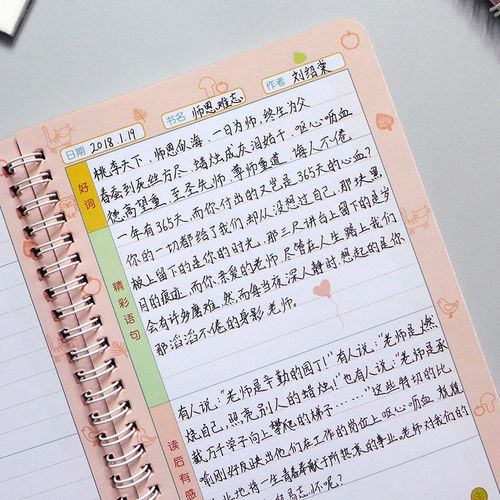 日期 2018.1.19 书名 师恩难忘 作者 刘绍棠
好词
桃李天下、师恩似海、一日为师，终生为父
春蚕到死丝方尽，蜡炬成灰泪始干、呕心呖血
德高望重、至圣先师、尊师重道、诲人不倦
精彩语句
一年有365天，而你付出的又岂是365天的心血？
你的一切都给了我们却从没想过自己，那块黑
板上留下的是你的时光，那三尺讲台上留下的是岁
月的痕迹，而你亲爱的老师，尽管在人生路上我们
会有许多磨难，然而每当夜深人静时，想起的是你
那滔滔不倦的身影，老师。
读后有感
有人说："老师是辛勤的园丁！"有人说："老师是燃
烧自己，照亮别人的蜡烛！"也有人说："老师是承
载万千学子向上攀爬的梯子……"这些贴切的比
喻刚好反映出他们在工作的岗位上呕心呖血、兢兢
业业地将一生青春奉献于所热爱的事业。老师对我们的